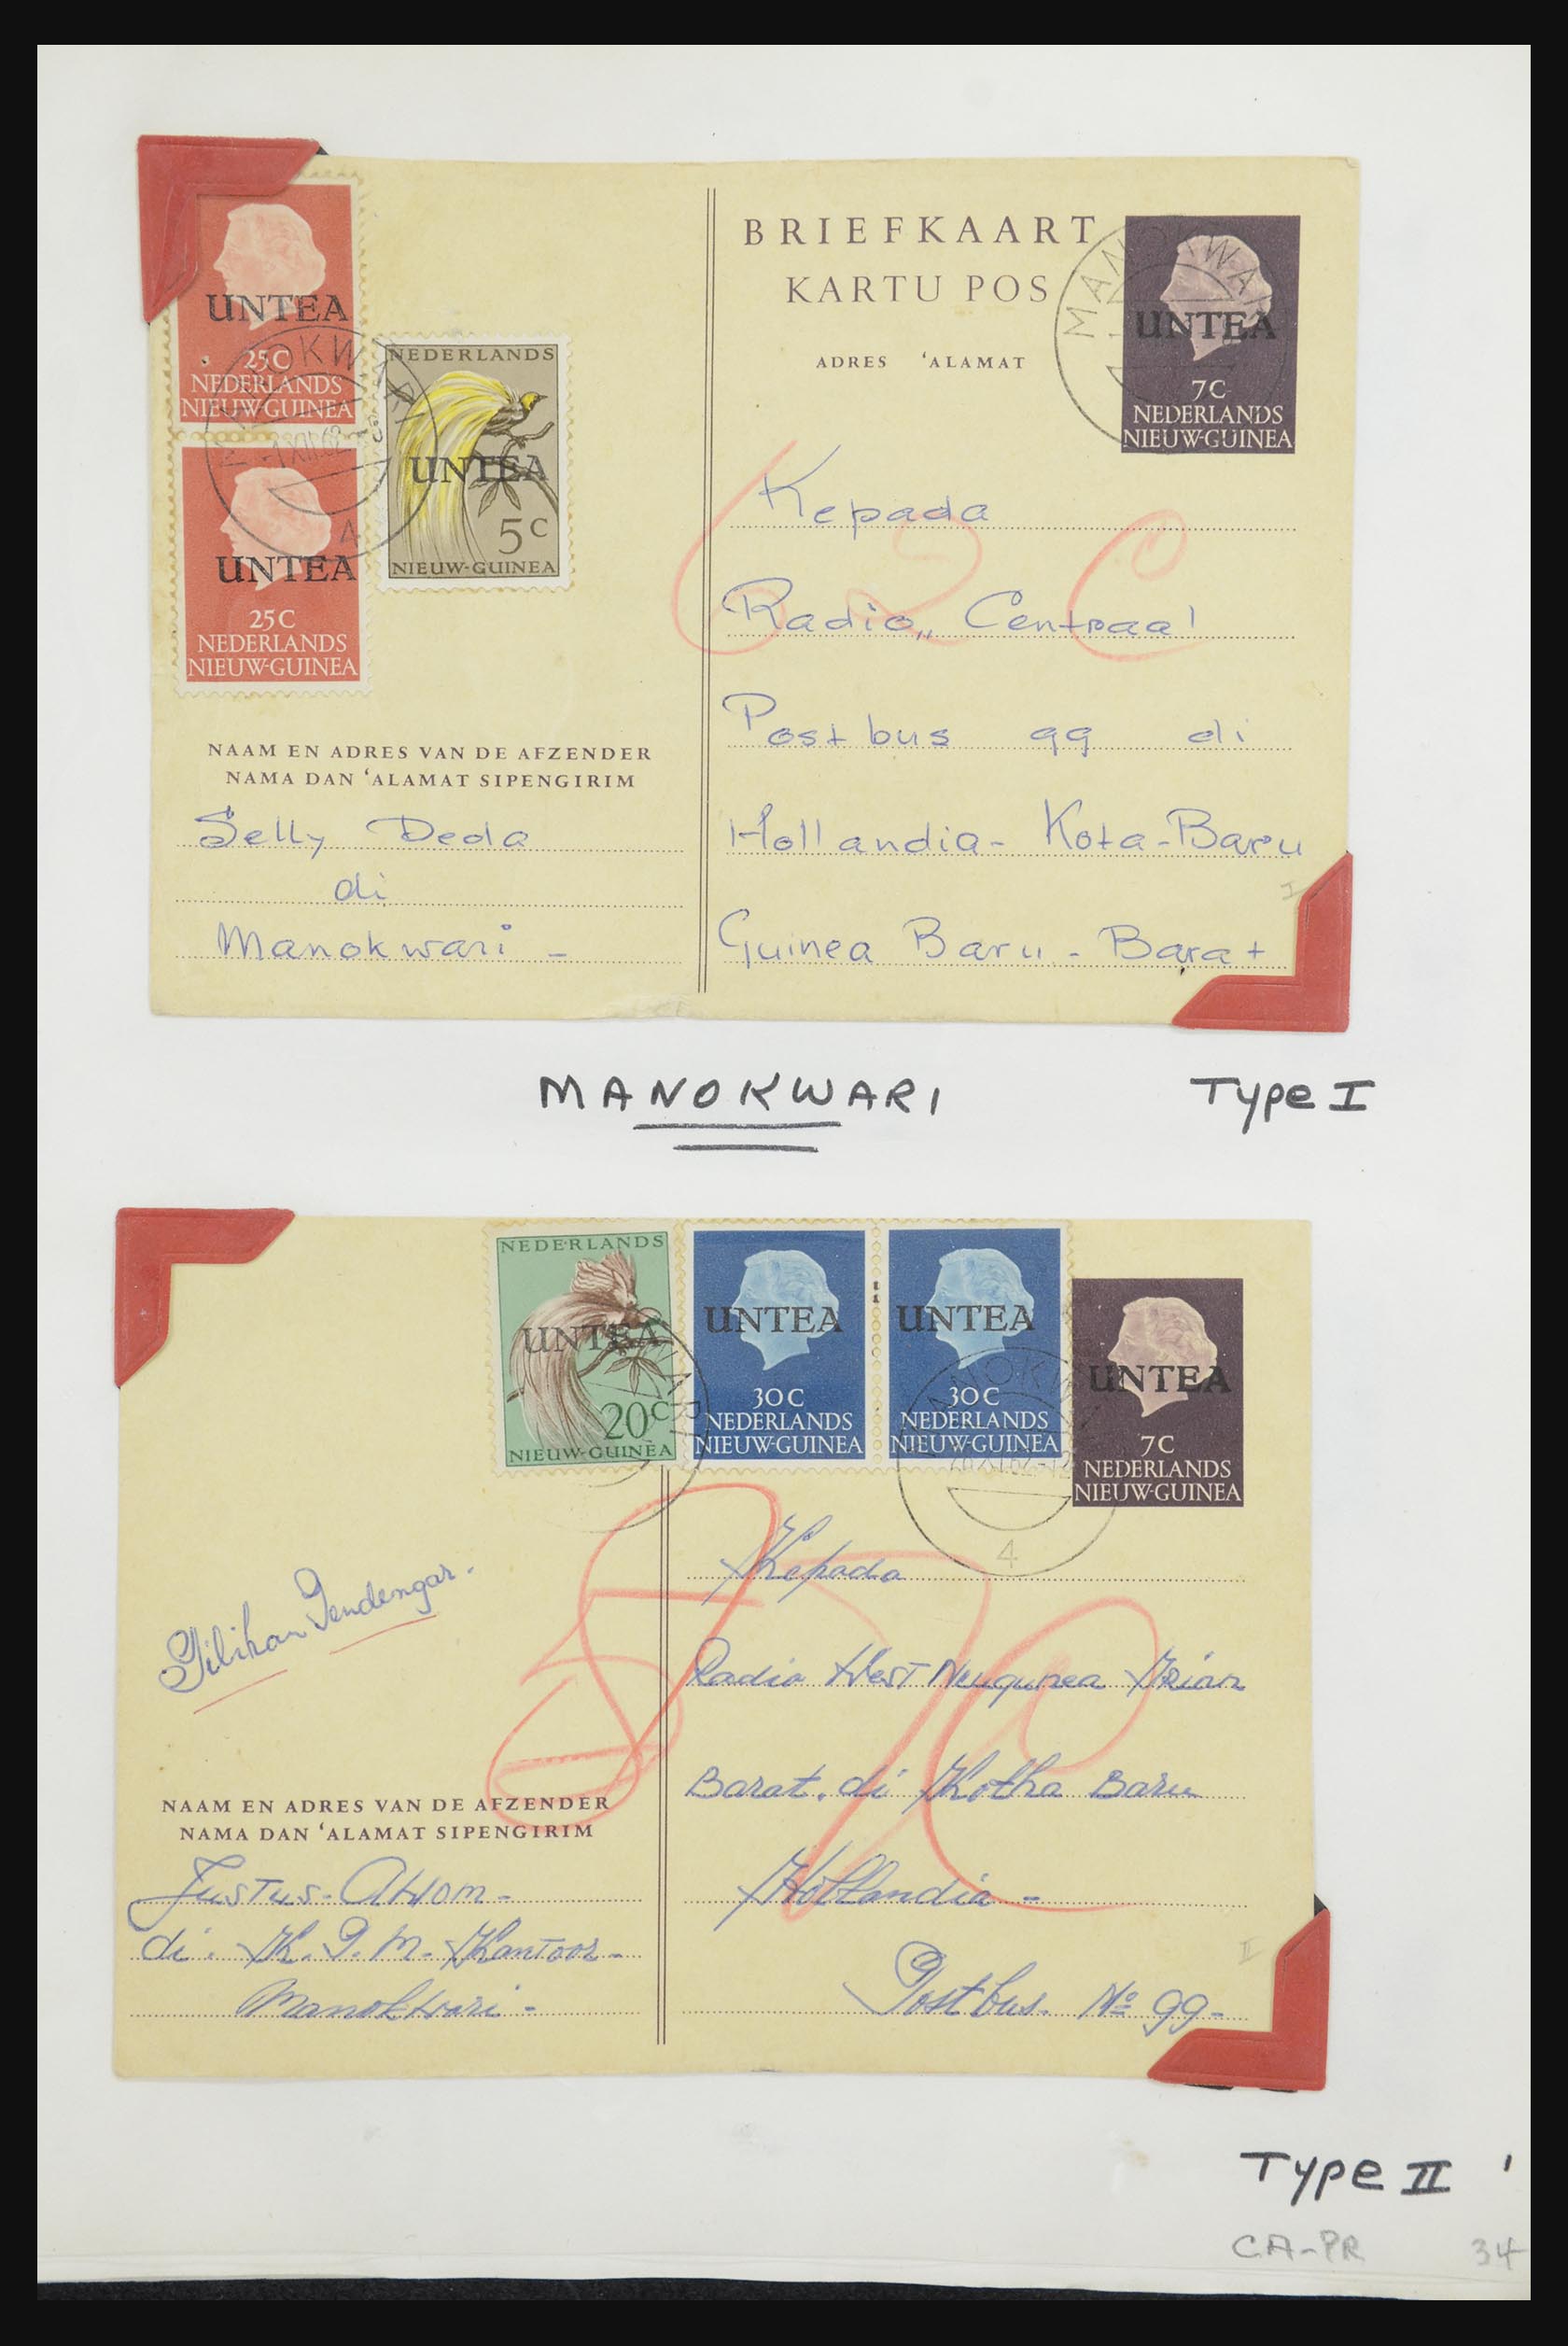 UNTEA
25C
NEDERLANDS
NIEUW-GUINEA
UNTEA
25C
NEDERLANDS
NIEUW-GUINEA
NEDERLANDS
UNTEA
5C
NIEUW-GUINEA
BRIEFKAART
KARTU POS
ADRES ‘ALAMAT
MANOKWARI
UNTEA
7C
NEDERLANDS
NIEUW-GUINEA
62 C
Kepada
Radio,, Centraal
Postbus 99 di
Hollandia- Kota-Baru
Guinea Baru - Barat
I
NAAM EN ADRES VAN DE AFZENDER
NAMA DAN ‘ALAMAT SIPENGIRIM
Selly Deda
di
Manokwari -
MANOKWARI
Type I
NEDERLANDS
UNTEA
20C
NIEUW-GUINEA
UNTEA
30C
NEDERLANDS
NIEUW-GUINEA
UNTEA
30C
NEDERLANDS
NIEUW-GUINEA
UNTEA
7C
NEDERLANDS
NIEUW-GUINEA
MANOKWARI
4
Pilihan Pendengar.
Kepada
Radio West Neugunea Irian
Barat. di Kotha Baru
Hollandia -
Postbus. No 99-
II
NAAM EN ADRES VAN DE AFZENDER
NAMA DAN ‘ALAMAT SIPENGIRIM
Justus- Awom -
di. K. P. M. Kantoor -
Manokwari -
Type II
CA-PR 34